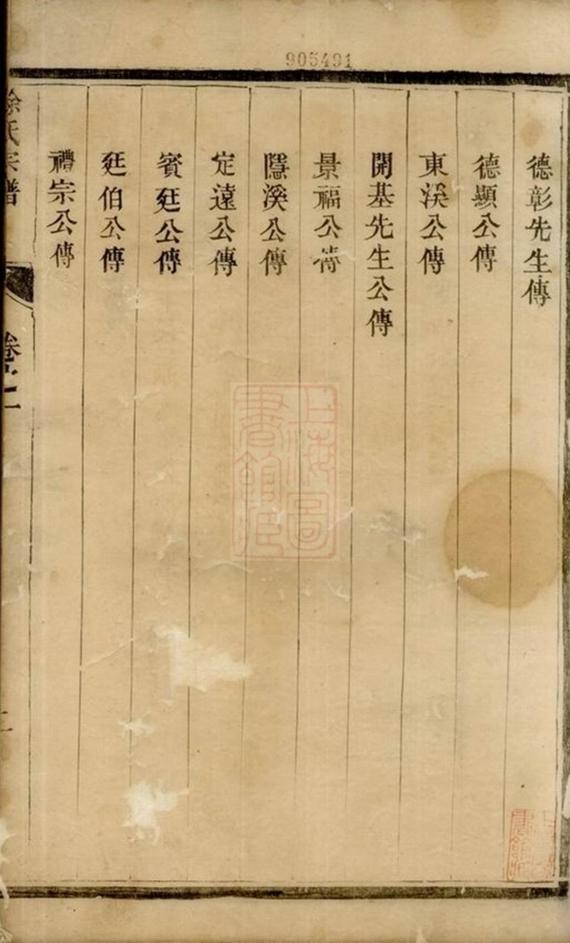 905491
德彰先生傳
德顯公傳
東溪公傳
開基先生公傳
景福公傳
隱溪公傳
定遠公傳
賓廷公傳
廷伯公傳
禮宗公傳
徐氏宗譜
卷之一
二
上海圖書館藏